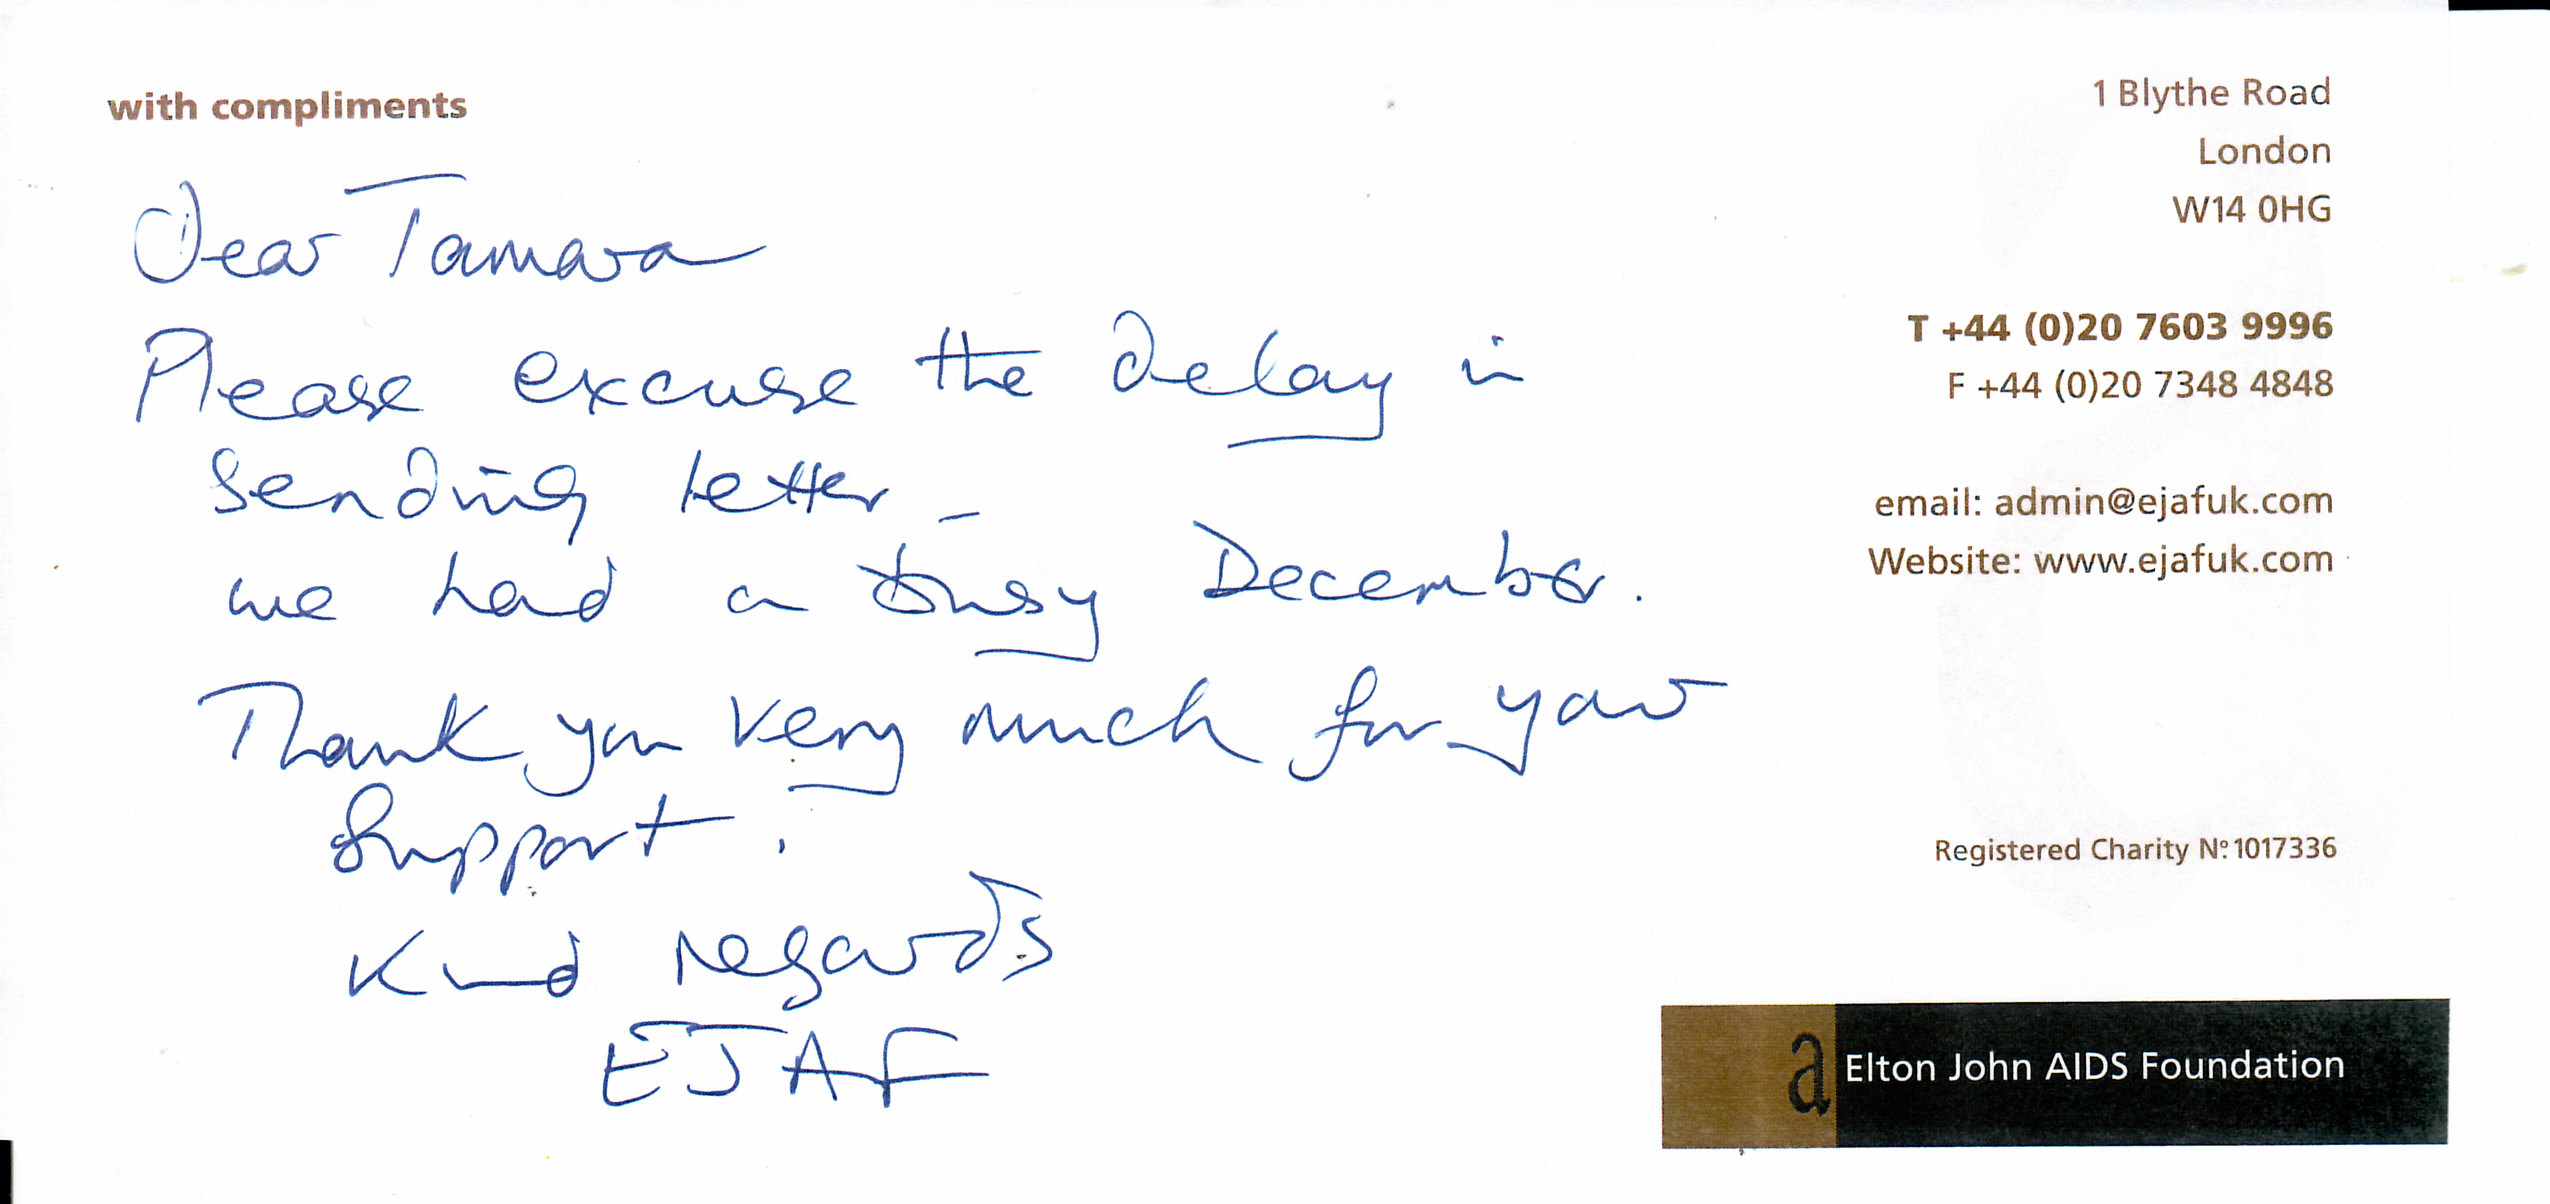 with compliments
Dear Tamara
Please excuse the delay in
sending letter -
we had a busy December.
Thank you very much for your
support.
Kind regards
EJAF
1 Blythe Road
London
W14 0HG
T +44 (0)20 7603 9996
F +44 (0)20 7348 4848
email: admin@ejafuk.com
Website: www.ejafuk.com
Registered Charity Nº 1017336
a Elton John AIDS Foundation